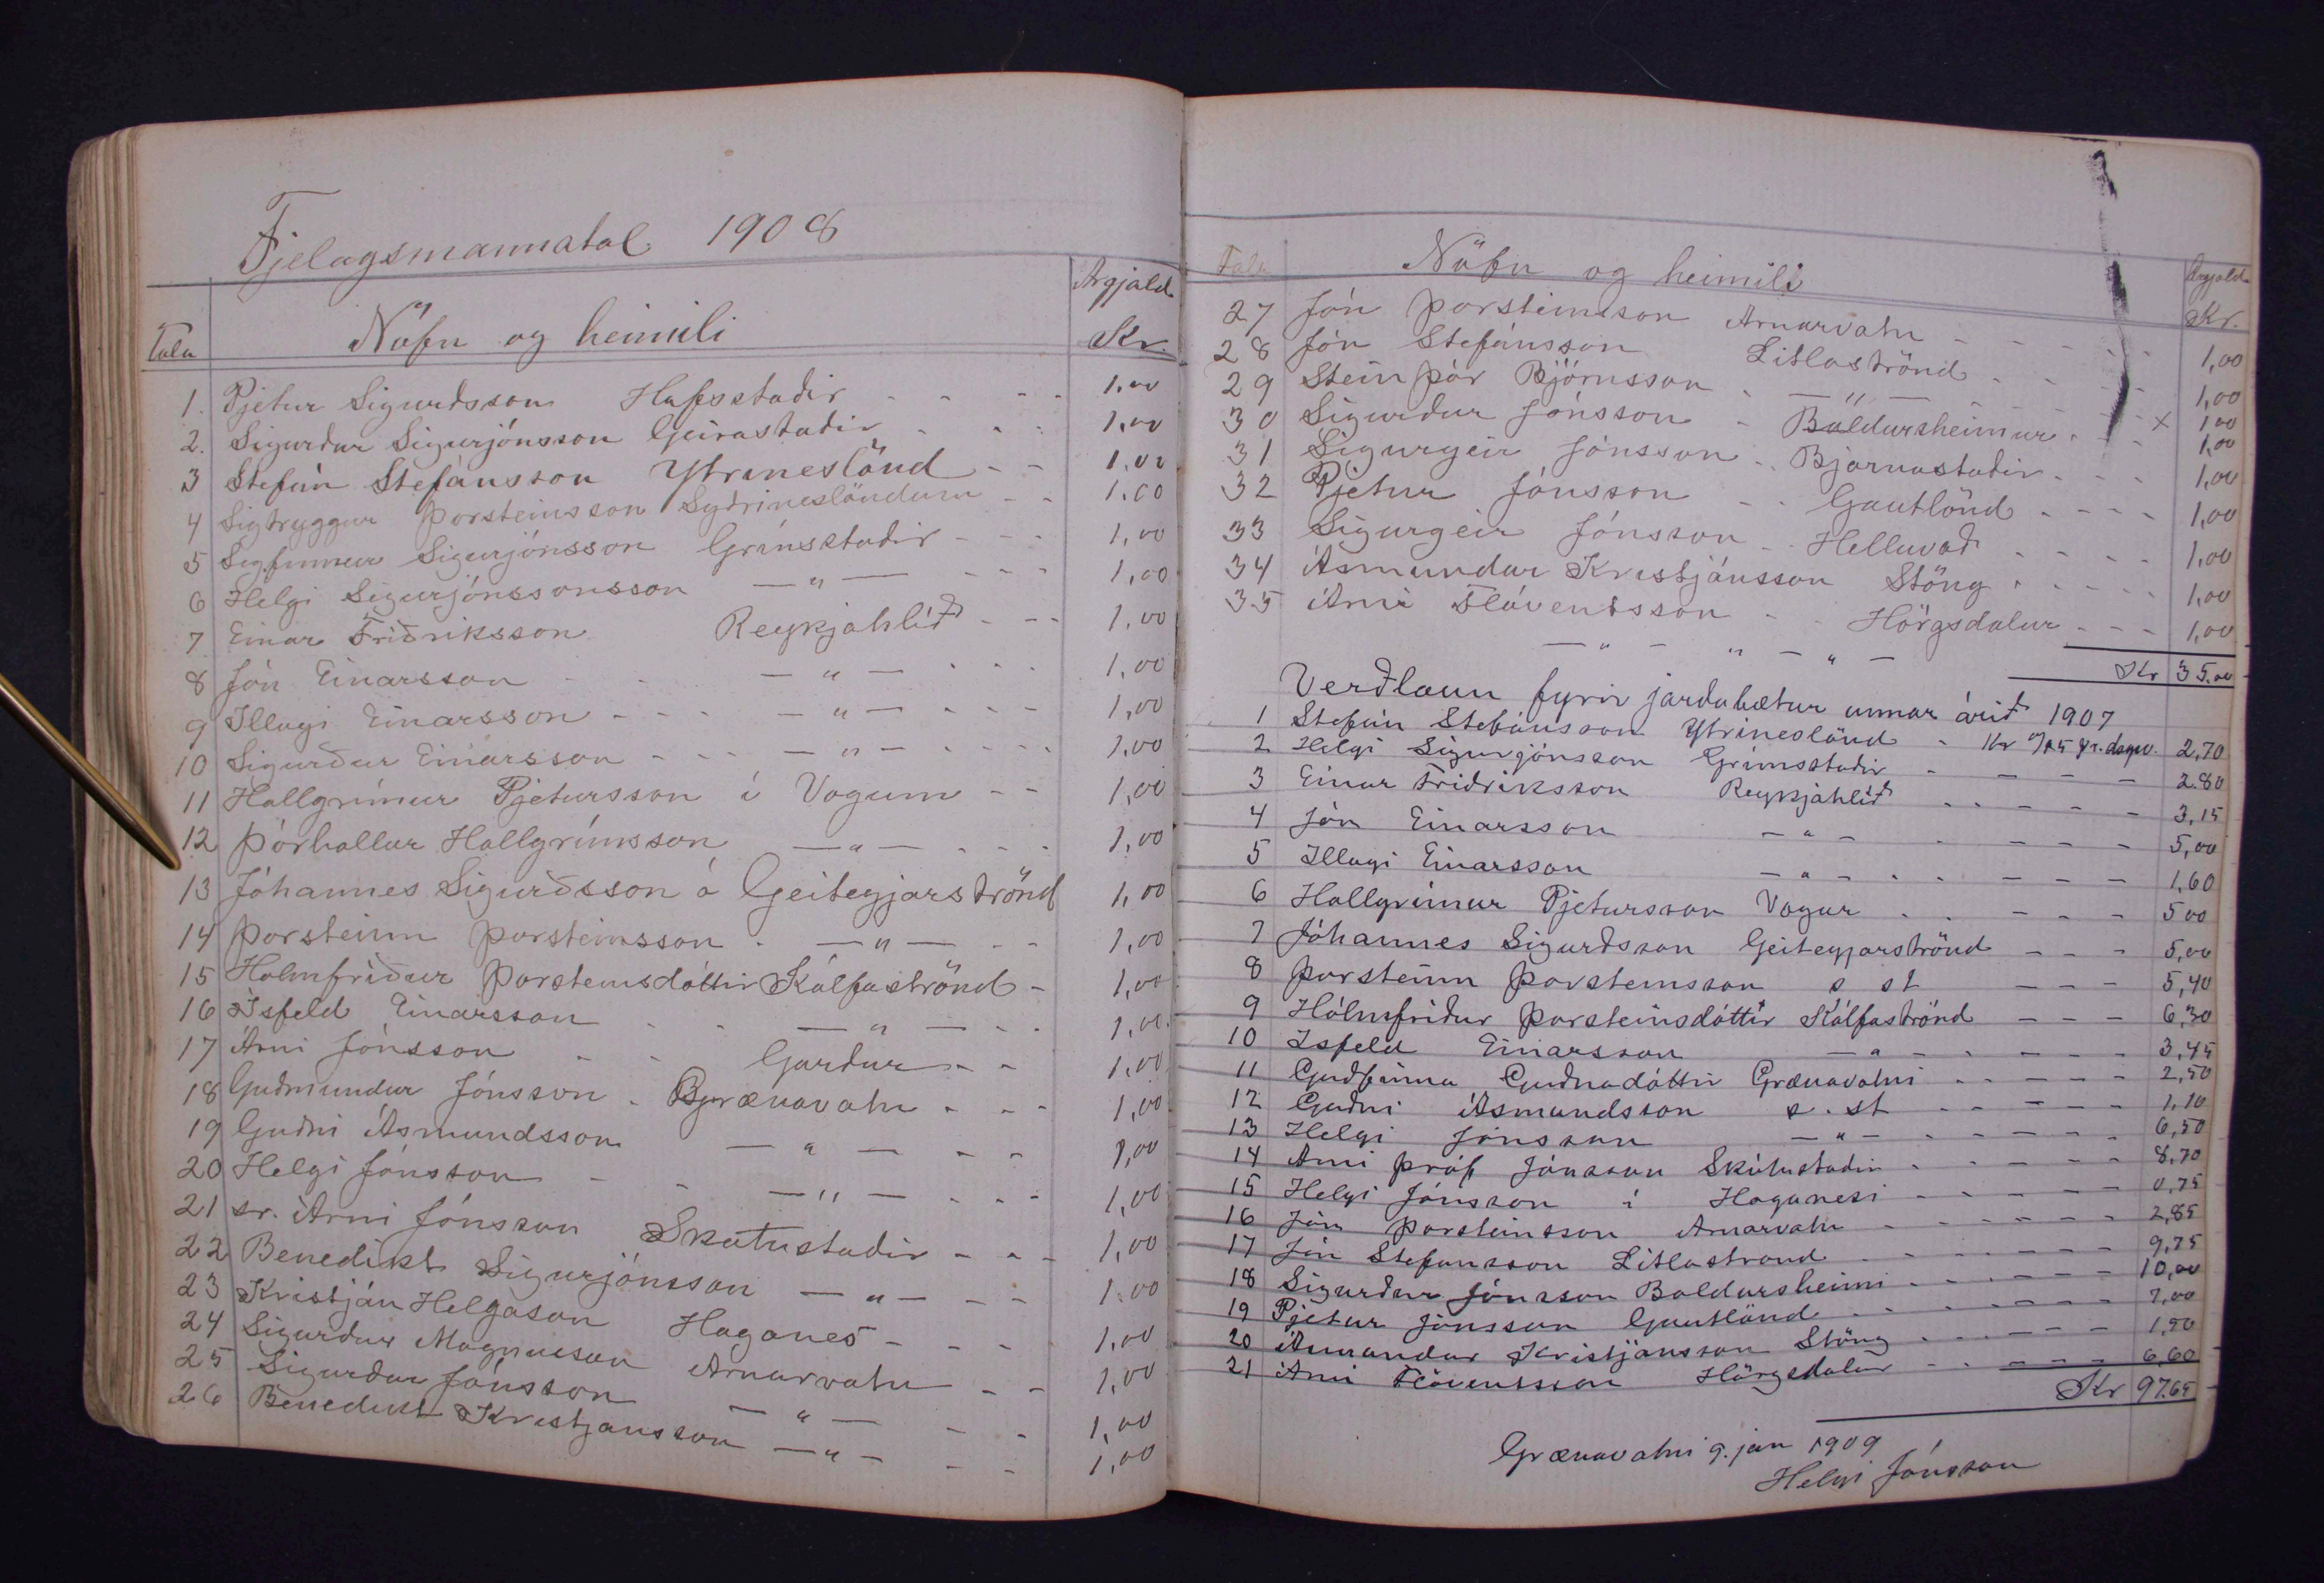 Fjelagsmannatal 1908
Tala Nöfn og heimili Árgjald Kr.
1. Pjetur Sigurðsson Hafsstaðir - - - - 1,00
2. Sigurður Sigurjónsson Geirastaðir - - - 1,00
3 Stefán Stefánsson Ytrineslönd - - 1,00
4 Sigtryggur Þorsteinsson Syðrineslöndum - - 1.00
5 Sigfinnur Sigurjónsson Grímsstaðir - - - 1,00
6 Helgi Sigurjónssonsson —„— - - - 1,00
7 Einar Friðriksson Reykjahlíð - - - 1,00
8 Jón Einarsson - - —„— - - - 1,00
9 Illugi Einarsson - - - —„— - - - 1,00
10 Sigurður Einarsson - - - —„— - - - - 1,00
11 Hallgrímur Pjetursson í Vogum - - 1,00
12 Þórhallur Hallgrímsson —„— - - - 1,00
13 Jóhannes Sigurðsson á Geiteyjarströnd 1,00
14 Þorsteinn Þorsteinsson - —„— - - 1,00
15 Holmfríður Þorsteinsdóttir Kálfaströnd - 1,00
16 Ísfeld Einarsson - - —„— - - 1,00
17 Árni Jónsson - - Garður - - 1,00
18 Guðmundur Jónsson - Grænavatn - - - 1,00
19 Guðni Ásmundsson —„— - - 1,00
20 Helgi Jónsson - - —„— - - - 1,00
21 sr. Árni Jónsson Skútustaðir - - - 1,00
22 Benedikt Sigurjónsson —„— - - 1,00
23 Kristján Helgason Haganes - - - - 1,00
24 Sigurður Magnusson Arnarvatn - - 1,00
25 Sigurður Jónsson —„— - - 1,00
26 Benedikt Kristjansson —„— - - 1,00
Tala Nöfn og heimili Árgjald Kr.
27 Jón Þorsteinsson Arnarvatn - - - - - 1,00
28 Jón Stefánsson Litlaströnd - - - - 1,00
29 Steinþór Björnsson - —„— - - - - x 1,00
30 Sigurður Jónsson - Baldursheimur - - - 1,00
31 Sigurgeir Jónsson - - Bjarnastaðir - - - 1,00
32 Pjetur Jónsson - - Gautlönd - - - - 1,00
33 Sigurgeir Jónsson - - Helluvað - - - - 1,00
34 Ásmundur Kristjánsson Stöng - - - - - 1,00
35 Árni Flóventsson - - Hörgsdalur - - - 1,00
—„— „ —„— Kr 35.00
Verðlaun fyrir jarðabætur unnar árið 1907
1 Stefán Stefánsson Ytrineslönd - Kr dagsv. 2,70
2 Helgi Sigurjónsson Grímsstaðir - - - - 2.80
3 Einar Friðriksson Reykjahlíð - - - - - 3,15
4 Jón Einarsson —„— - - - - 5,00
5 Illugi Einarsson —„— - - - - - 1,60
6 Hallgrímur Pjetursson Vogur - - - - - 5 00
7 Jóhannes Sigurðsson Geiteyjarströnd - - - 5,00
8 Þorsteinn Þorsteinsson s st - - - 5,40
9 Hólmfríður Þorsteinsdóttir Kálfaströnd - - - 6,30
10 Isfeld Einarsson —„— - - - - - 3,45
11 Guðfinna Guðnadóttir Grænavatni - - - - - 2,50
12 Guðni Ásmundsson s. st - - - - - 1,10
13 Helgi Jónsson —„— - - - - - 6,50
14 Árni próf Jónsson Skútustaðir - - - - - 8,70
15 Helgi Jónsson í Haganesi - - - - - 0,75
16 Jón Þorsteinsson Arnarvatn - - - - - - 2,85
17 Jón Stefansson Litlastrond - - - - - - 9,75
18 Sigurður Jónsson Baldursheimi - - - - - - 10,00
19 Pjetur Jónsson Gautlönd - - - - - - - 7,00
20 Ásmundur Kristjánsson Stöng - - - - - - 1,50
21 Árni Flóventsson Hörgsdalur - - - - - 6,60
Kr 97.65
Grænavatni 9. jan 1909
Helgi Jónsson